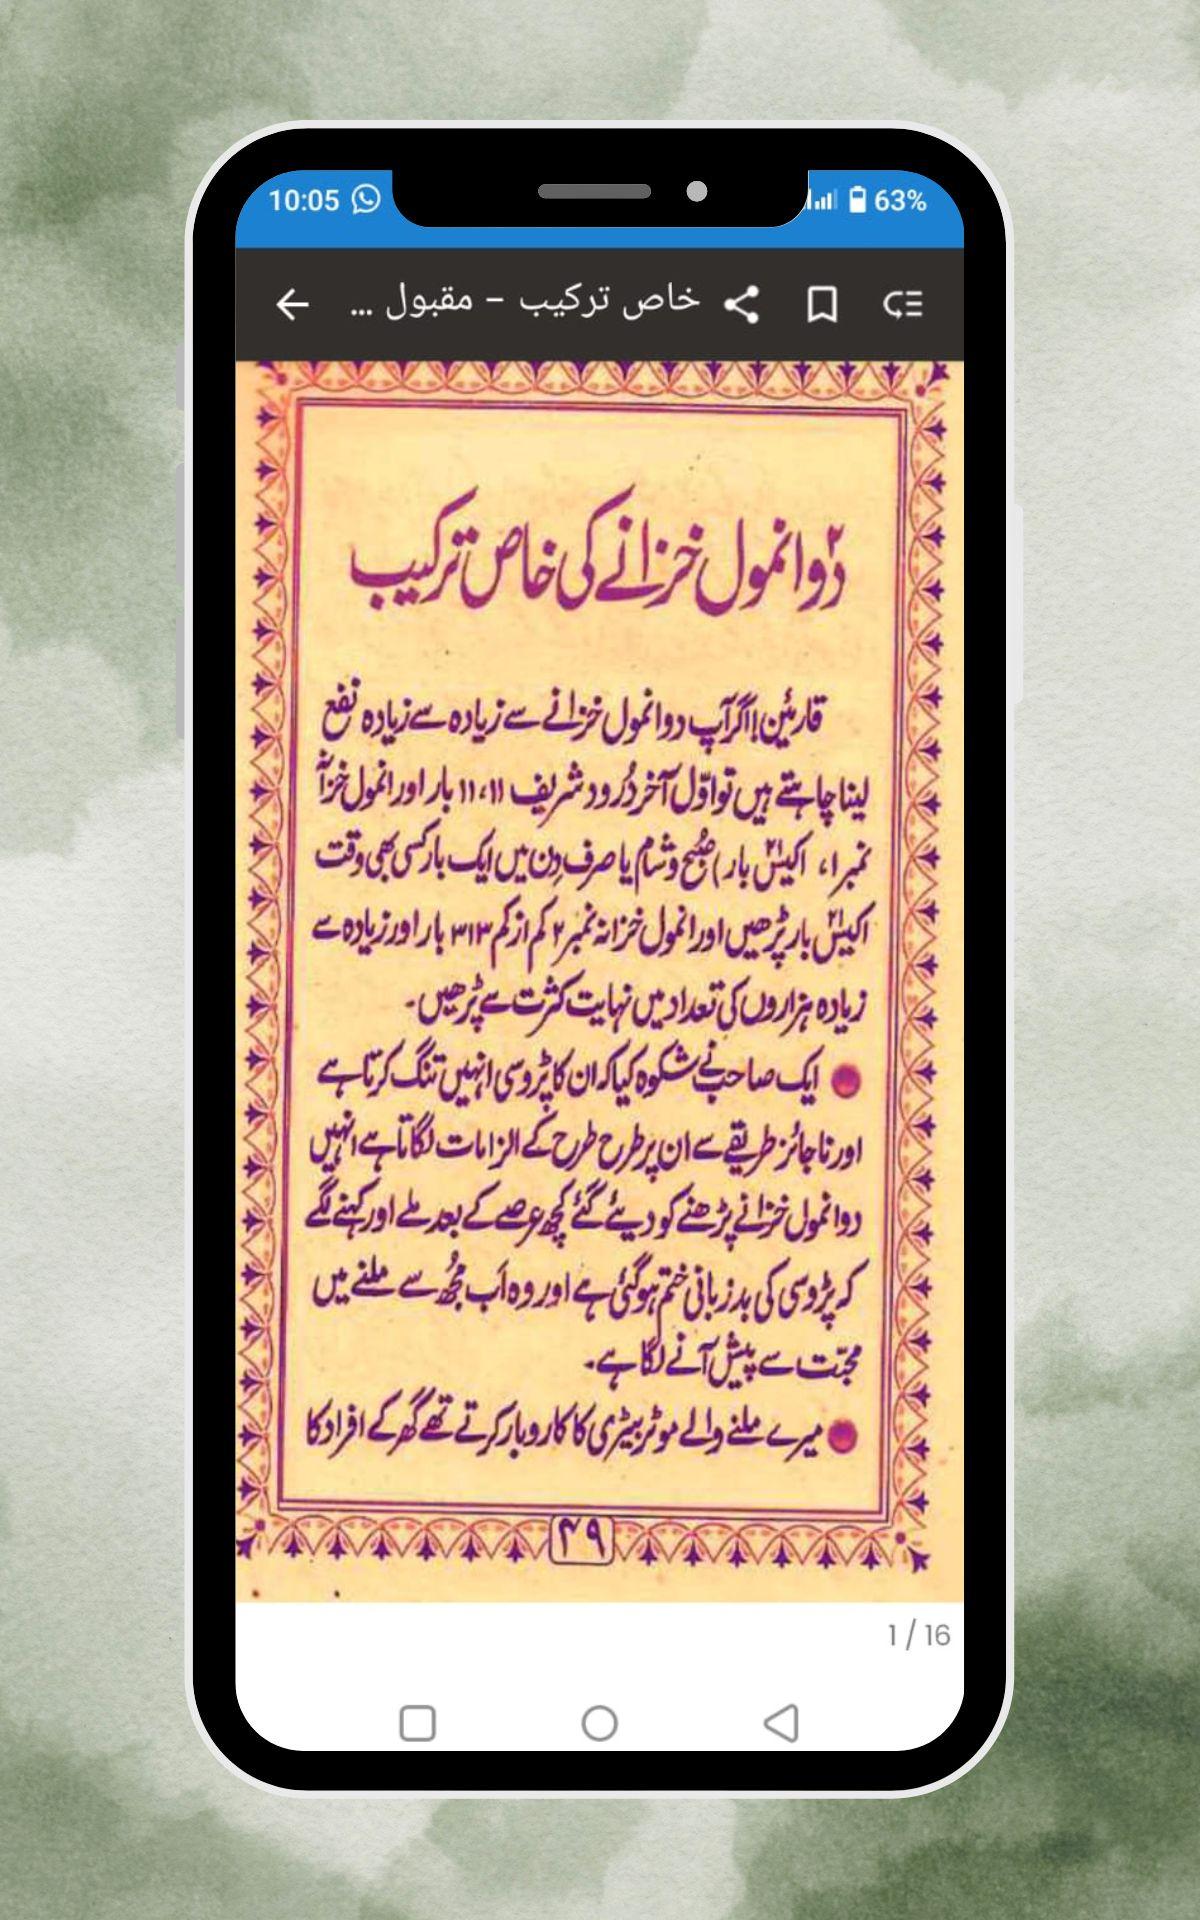 10:05
63%
خاص ترکیب – مقبول ...
دو۲ انمول خزانے کی خاص ترکیب
قارئین! اگر آپ دو انمول خزانے سے زیادہ سے زیادہ نفع
لینا چاہتے ہیں تو اوّل آخر دُرود شریف ۱۱، ۱۱ بار اور انمول خزانہ
نمبر ۱، اکیس۲۱ بار) صُبح و شام یا صرف دِن میں ایک بار کسی بھی وقت
اکیس۲۱ بار پڑھیں اور انمول خزانہ نمبر ۲ کم از کم ۳۱۳ بار اور زیادہ سے
زیادہ ہزاروں کی تعداد میں نہایت کثرت سے پڑھیں۔
ایک صاحب نے شکوہ کیا کہ ان کا پڑوسی انہیں تنگ کرتا ہے
اور ناجائز طریقے سے ان پر طرح طرح کے الزامات لگاتا ہے انہیں
دو انمول خزانے پڑھنے کو دیئے گئے کچھ عرصے کے بعد ملے اور کہنے لگے
کہ پڑوسی کی بدزبانی ختم ہوگئی ہے اور وہ اَب مجُھ سے ملنے میں
محبّت سے پیش آنے لگا ہے۔
میرے ملنے والے موٹر بیٹری کا کاروبار کرتے تھے گھر کے افراد کا
۴۹
1 / 16